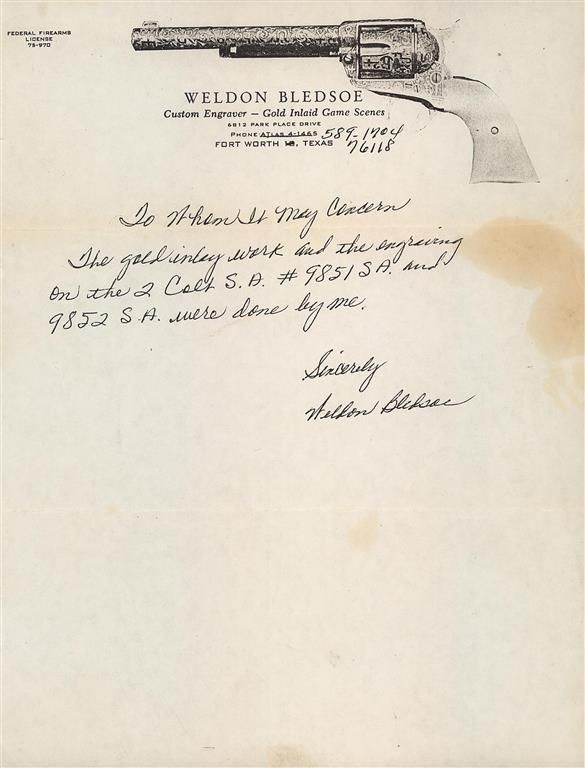 FEDERAL FIREARMS
LICENSE
75-970
WELDON BLEDSOE
Custom Engraver — Gold Inlaid Game Scenes
6812 PARK PLACE DRIVE
PHONE ATLAS 4-1465 589-1704
FORT WORTH 18, TEXAS 76118
To Whom It May Concern
The gold inlay work and the engraving
on the 2 Colt S.A. # 9851 S.A. and
9852 S.A. were done by me.
Sincerely
Weldon Bledsoe